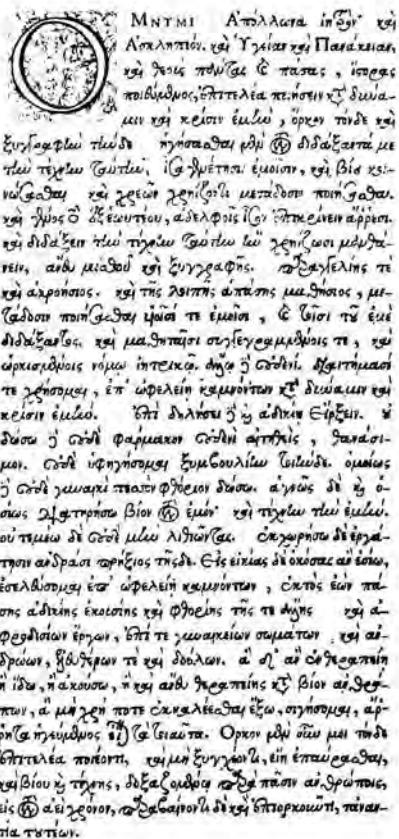 ΟΜΝΥΜΙ Ἀπόλλωνα ἰητρὸν καὶ
Ἀσκληπιόν. καὶ Ὑγείαν καὶ Πανάκειαν,
καὶ θεοὺς πάντας τε πάσας, ἵστορας
ποιεύμενος, ἐπιτελέα ποιήσειν κατὰ δύνα-
μιν καὶ κρίσιν ἐμὴν, ὅρκον τόνδε καὶ
ξυγγραφὴν τήνδε ἡγήσασθαι μὲν τὸν διδάξαντά με
τὴν τέχνην ταύτην, ἴσα γενέτῃσι ἐμοῖσιν, καὶ βίου κοι-
νώσασθαι καὶ χρεῶν χρηΐζοντι μετάδοσιν ποιήσασθαι.
καὶ γένος τὸ ἐξ ἑωυτέου, ἀδελφοῖς ἴσον ἐπικρίνειν ἄρρεσι.
καὶ διδάξειν τὴν τέχνην ταύτην ἢν χρηΐζωσι μανθά-
νειν, ἄνευ μισθοῦ καὶ ξυγγραφῆς. παραγγελίης τε
καὶ ἀκροήσιος. καὶ τῆς λοιπῆς ἁπάσης μαθήσιος, με-
τάδοσιν ποιήσασθαι υἱοῖσί τε ἐμοῖσι, καὶ τοῖσι τοῦ ἐμὲ
διδάξαντος. καὶ μαθηταῖσι συγγεγραμμένοις τε, καὶ
ὡρκισμένοις νόμῳ ἰητρικῷ. ἄλλῳ δὲ οὐδενί. διαιτήμασί
τε χρήσομαι, ἐπ' ὠφελείῃ καμνόντων κατὰ δύναμιν καὶ
κρίσιν ἐμήν. ἐπὶ δηλήσει δὲ καὶ ἀδικίῃ εἴρξειν. οὐ
δώσω δὲ οὐδὲ φάρμακον οὐδενὶ αἰτηθεὶς, θανάσι-
μον. οὐδὲ ὑφηγήσομαι ξυμβουλίην τοιήνδε. ὁμοίως
δὲ οὐδὲ γυναικὶ πεσσὸν φθόριον δώσω. ἁγνῶς δὲ καὶ ὁ-
σίως διατηρήσω βίον τὸν ἐμὸν καὶ τέχνην τὴν ἐμήν.
οὐ τεμέω δὲ οὐδὲ μὴν λιθιῶντας. ἐκχωρήσω δὲ ἐργά-
τῃσιν ἀνδράσι πρήξιος τῆσδε. Εἰς οἰκίας δὲ ὁκόσας ἂν ἐσίω,
ἐσελεύσομαι ἐπ' ὠφελείῃ καμνόντων, ἐκτὸς ἐὼν πά-
σης ἀδικίης ἑκουσίης καὶ φθορίης τῆς τε ἄλλης καὶ ἀ-
φροδισίων ἔργων, ἐπί τε γυναικείων σωμάτων καὶ ἀν-
δρῴων, ἐλευθέρων τε καὶ δούλων. ἃ δ' ἂν ἐν θεραπείῃ
ἢ ἴδω, ἢ ἀκούσω, ἢ καὶ ἄνευ θεραπείης κατὰ βίον ἀνθρώ-
πων, ἃ μὴ χρή ποτε ἐκκαλέεσθαι ἔξω, σιγήσομαι, ἄρ-
ρητα ἡγεύμενος εἶναι τὰ τοιαῦτα. Ὅρκον μὲν οὖν μοι τόνδε
ἐπιτελέα ποιέοντι, καὶ μὴ ξυγχέοντι, εἴη ἐπαύρασθαι,
καὶ βίου καὶ τέχνης, δοξαζομένῳ παρὰ πᾶσιν ἀνθρώποις,
εἰς τὸν ἀεὶ χρόνον, παραβαίνοντι δὲ καὶ ἐπιορκοῦντι, τἀναν-
τία τουτέων.